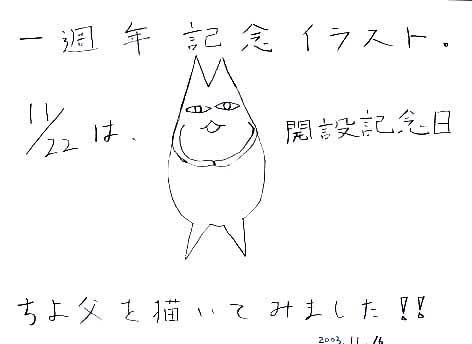 一週年記念イラスト。
11/22は、 開設記念日
ちよ父を描いてみました!!
2003.11.16